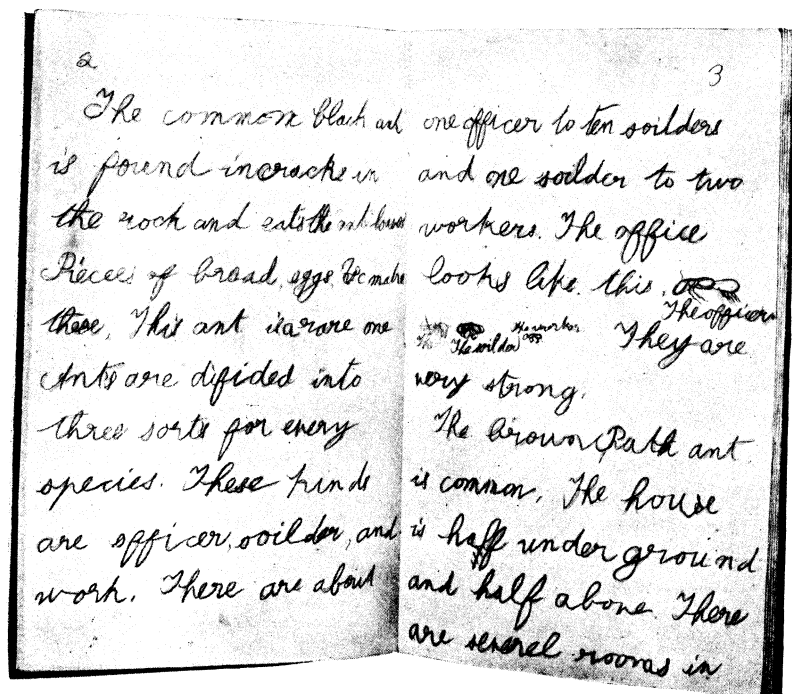 2
The common black ant
is found in cracks in
the rock and eats the
Pieces of bread, eggs,
these. This ant is a rare one
Ants are difided into
three sorts for every
species. These kinds
are officer, soilder, and
work. There are about
3
one officer to ten soilders
and one soilder to two
workers. The office
looks like this.
The officer
The soilder The worker They are
very strong.
The brown Path ant
is common. The house
is haff under ground
and half above. There
are several rooms in